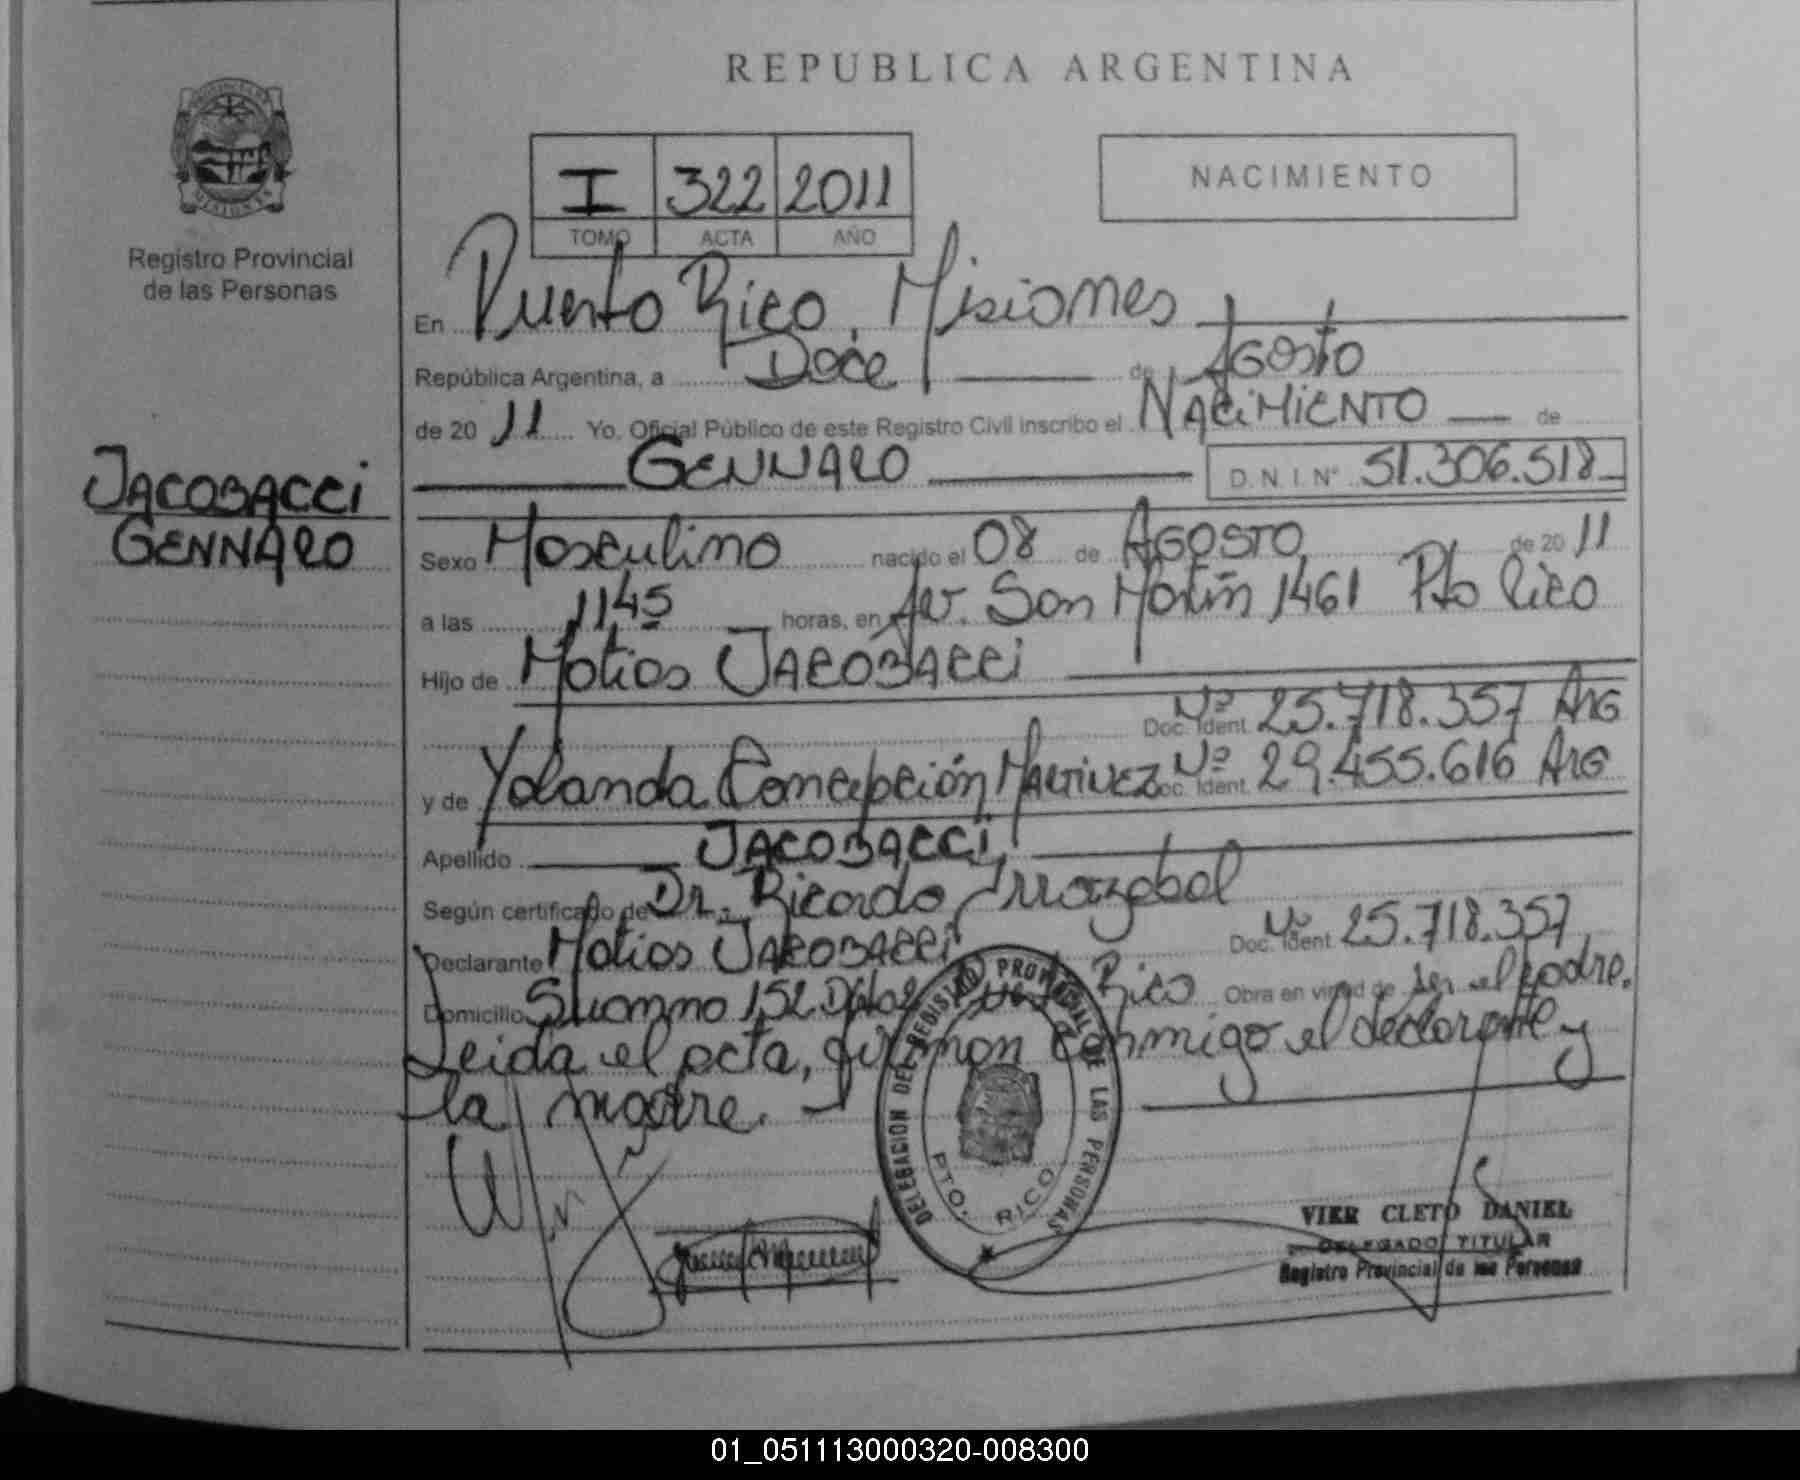 REPUBLICA ARGENTINA
PROVINCIA DE
MISIONES
Registro Provincial
de las Personas
I 322 2011
TOMO ACTA AÑO
NACIMIENTO
En Puerto Rico, Misiones
República Argentina, a Doce de Agosto
de 20 11 Yo, Oficial Público de este Registro Civil inscribo el NACIMIENTO de
GENNARO D.N.I. N° 51.306.518
JACOBACCI
GENNARO
Sexo Masculino nacido el 08 de AGOSTO de 20 11
a las 1145 horas, en Av. San Martín 1461 Pto Rico
Hijo de Matias JACOBACCI
Doc. Ident. Nº 25.718.357 ARG
y de Yolanda Concepción MARTINEZ Doc. Ident. Nº 29.455.616 ARG
Apellido JACOBACCI
Según certificado de Dr. Ricardo Irrazabal
Declarante Matias JACOBACCI Doc. Ident. Nº 25.718.357
Domicilio 152 Rico Obra en virtud de ser el padre.
Leida el acta, firman conmigo el declarante y
la madre.
DELEGACION DEL REGISTRO PROVINCIAL DE LAS PERSONAS
PTO. RICO
VIER CLETO DANIEL
DELEGADO TITULAR
Registro Provincial de las Personas
01_051113000320-008300